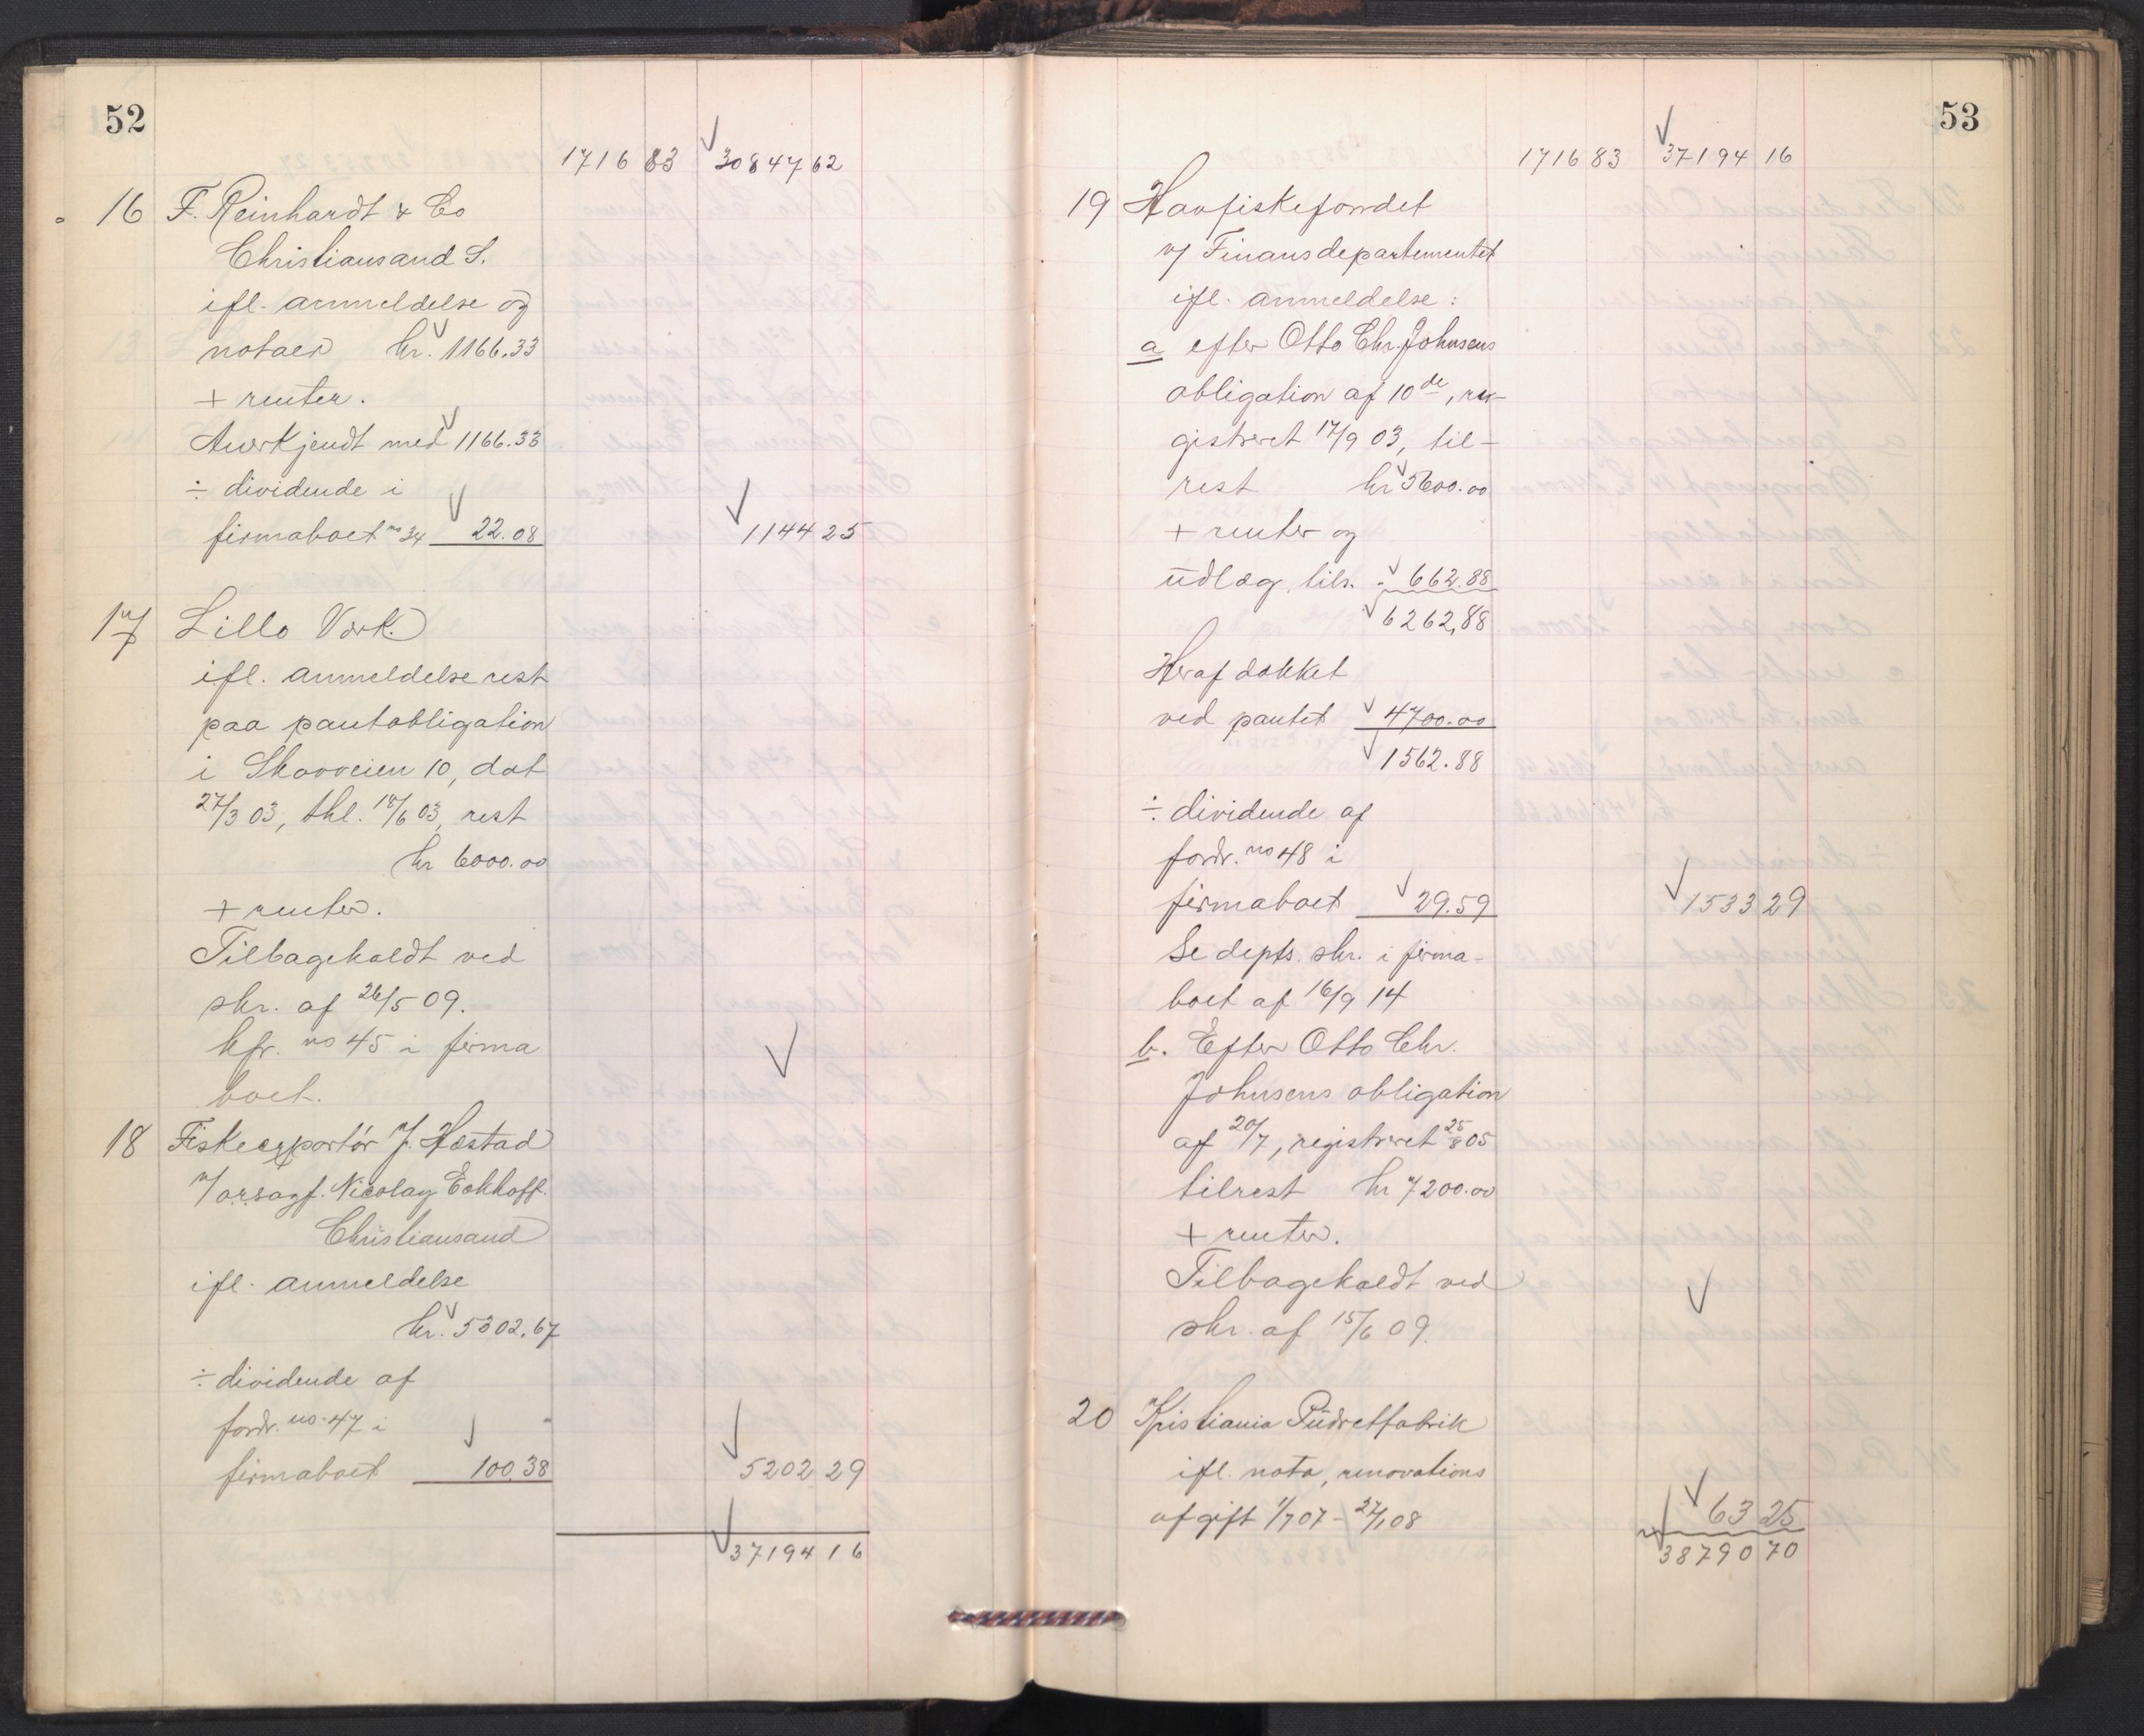 52
1716 83 30847 62
16 F. Reinhardt & Co
Christiansand S.
ifl. anmeldelse og
notaer kr. 1166.33
+ renter.
Anerkjendt med 1166.33
÷ dividende i
firmaboet no 34 22.08 1144 25
17 Lillo Værk.
ifl. anmeldelse rest
paa pantobligation
i Skovveien 10, dat
27/3 03, thl. 18/6 03, rest
kr 6000.00
+ renter.
Tilbagekaldt ved
skr. af 26/5 09.
kfr. no 45 i firma
boet.
18 Fiskeexportør J. Hestad
v/ o.r.sagf. Nicolay Eckhoff.
Christiansand
ifl. anmeldelse
kr. 5302.67
÷ dividende af
fordr. no 47 i
firmaboet 100.38 5202 29
37194 16
53
1716 83 37194 16
19 Havfiskefondet
v/ Finansdepartementet
ifl. anmeldelse:
a efter Otto Chr. Johnsens
obligation af 10de, re-
gistreret 17/9 03, til-
rest kr 5600.00
+ renter og
udlæg tils. - 662.88
6262,88
Heraf dækket
ved pantet 4700.00
1562.88
÷ dividende af
fordr. no 48 i
firmaboet 29.59 1533 29
Se depts. skr. i firma-
boet af 16/9 14
b. Efter Otto Chr.
Johnsens obligation
af 20/7, registreret 25/8 05
tilrest kr 7200.00
+ renter.
Tilbagekaldt ved
skr. af 15/6 09.
20 Kristiania Pudretfabrik
ifl. nota, renovations
afgift 1/7 07 - 27/1 08 63 25
38790 70